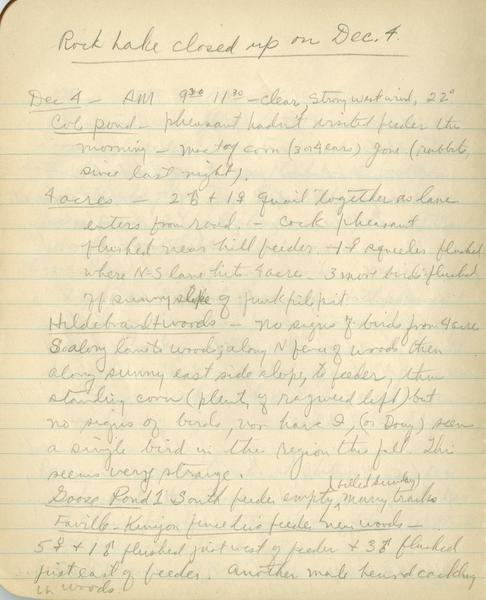 Rock Lake closed up on Dec. 4.
Dec 4 - AM 9³⁰ 11³⁰ - clear, strong west wind, 22°
Col. pond - pheasant hadn't visited feeder this
morning - most of corn (3 or 4 ears) gone (rabbits,
since last night).
4 acres - 2♂ + 1♀ quail together as lane
enters from road. - Cock pheasant
flushed near hill feeder. - 1♀ flushed
where N-S lane hits 4 acre. 3 more birds flushed
off sunny slope of junk pile pit
Hildebrandt woods - no signs of birds from 4 acre
S along lane to woods, along N fence of woods then
along sunny east side slope, to feeder, then
standing corn (plenty of ragweed left) but
no signs of birds, nor have I, (or Doug) seen
a single bird in this region this fall. This
seems very strange.
Goose Pond 1 South feeder empty, (filled Sunday) Many tracks
Faville-Kinyon fence line feeder near woods -
5♀ + 1♂ flushed just west of feeder + 3♂ flushed
just east of feeder. Another male heard cackling
in woods